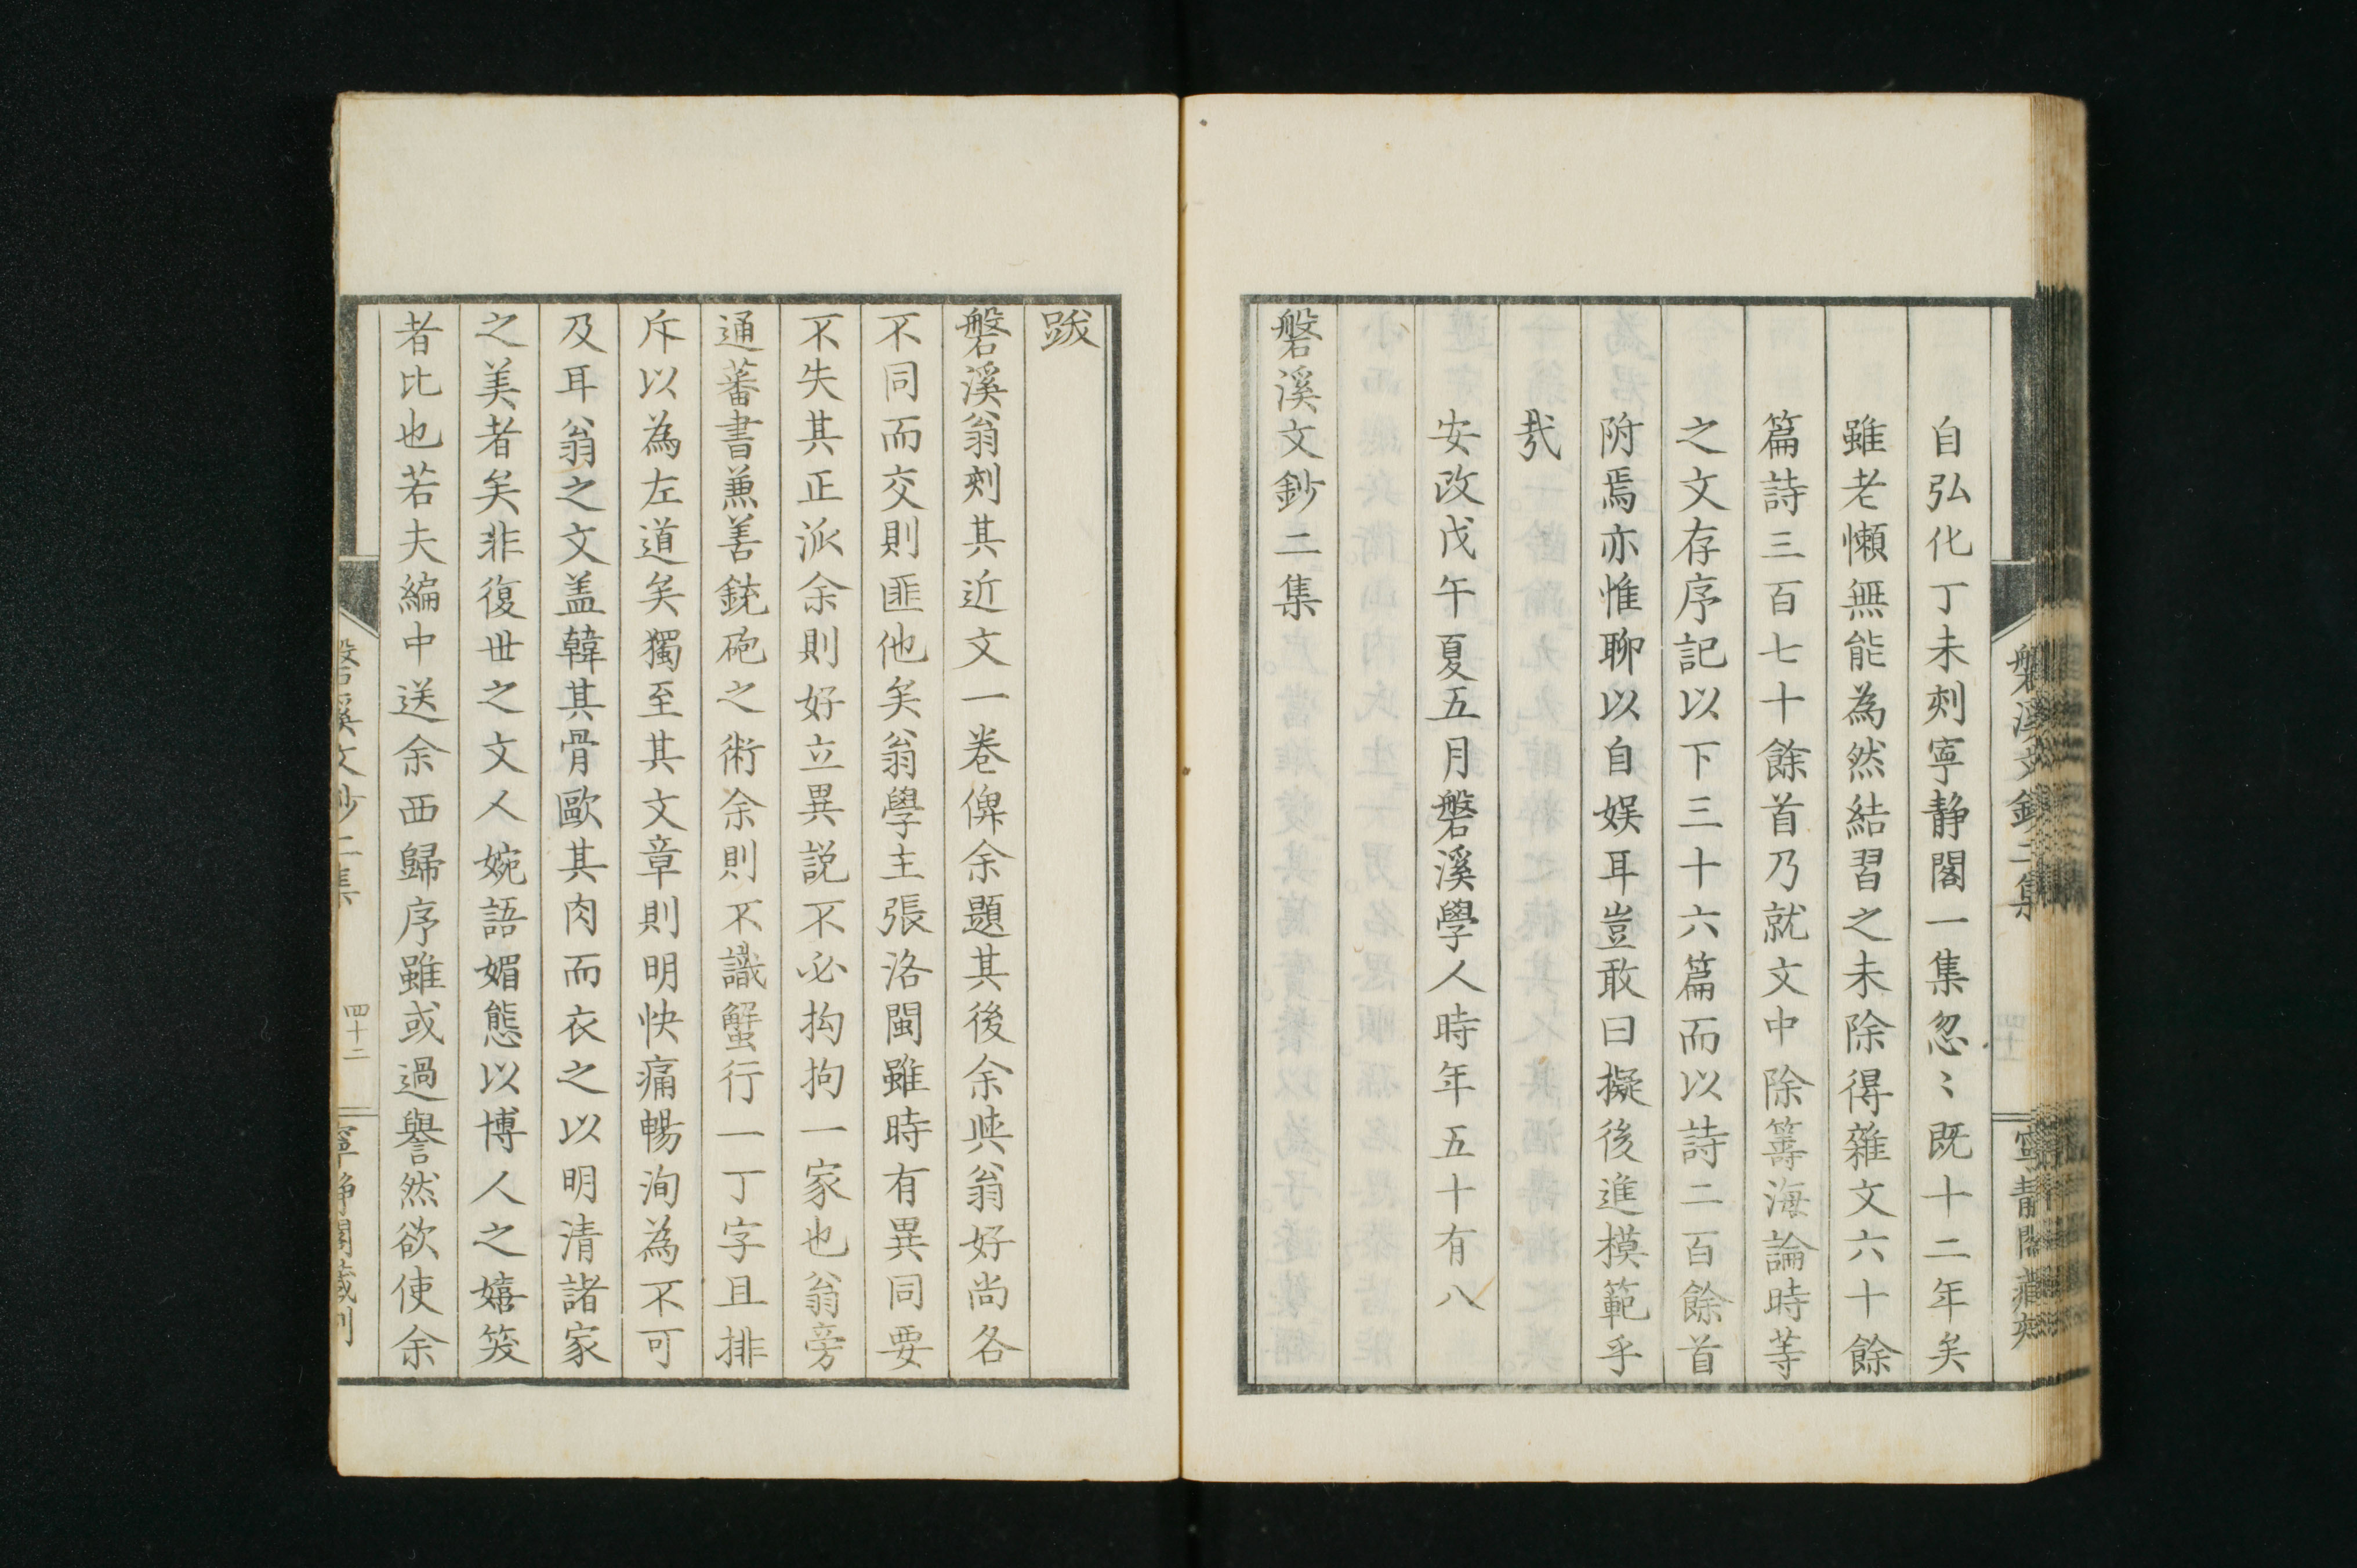 自弘化丁未刻寧静閣一集忽〻既十二年矣
雖老懶無能為然結習之未除得雜文六十餘
篇詩三百七十餘首乃就文中除籌海論時等
之文存序記以下三十六篇而以詩二百餘首
附焉亦惟聊以自娱耳豈敢曰擬後進模範乎
哉
安政戊午夏五月磐溪學人時年五十有八
磐溪文鈔二集
跋
磐溪翁刻其近文一巻俾余題其後余与翁好尚各
不同而交則匪他矣翁學主張洛閩雖時有異同要
不失其正派余則好立異説不必拘拘一家也翁旁
通蕃書兼善銃砲之術余則不識蟹行一丁字且排
斥以為左道矣獨至其文章則明快痛暢洵為不可
及耳翁之文盖韓其骨歐其肉而衣之以明清諸家
之美者矣非復世之文人婉語媚態以博人之嬉笑
者比也若夫編中送余西歸序雖或過譽然欲使余
磐溪文鈔二集
四十二
寧静閣蔵刻